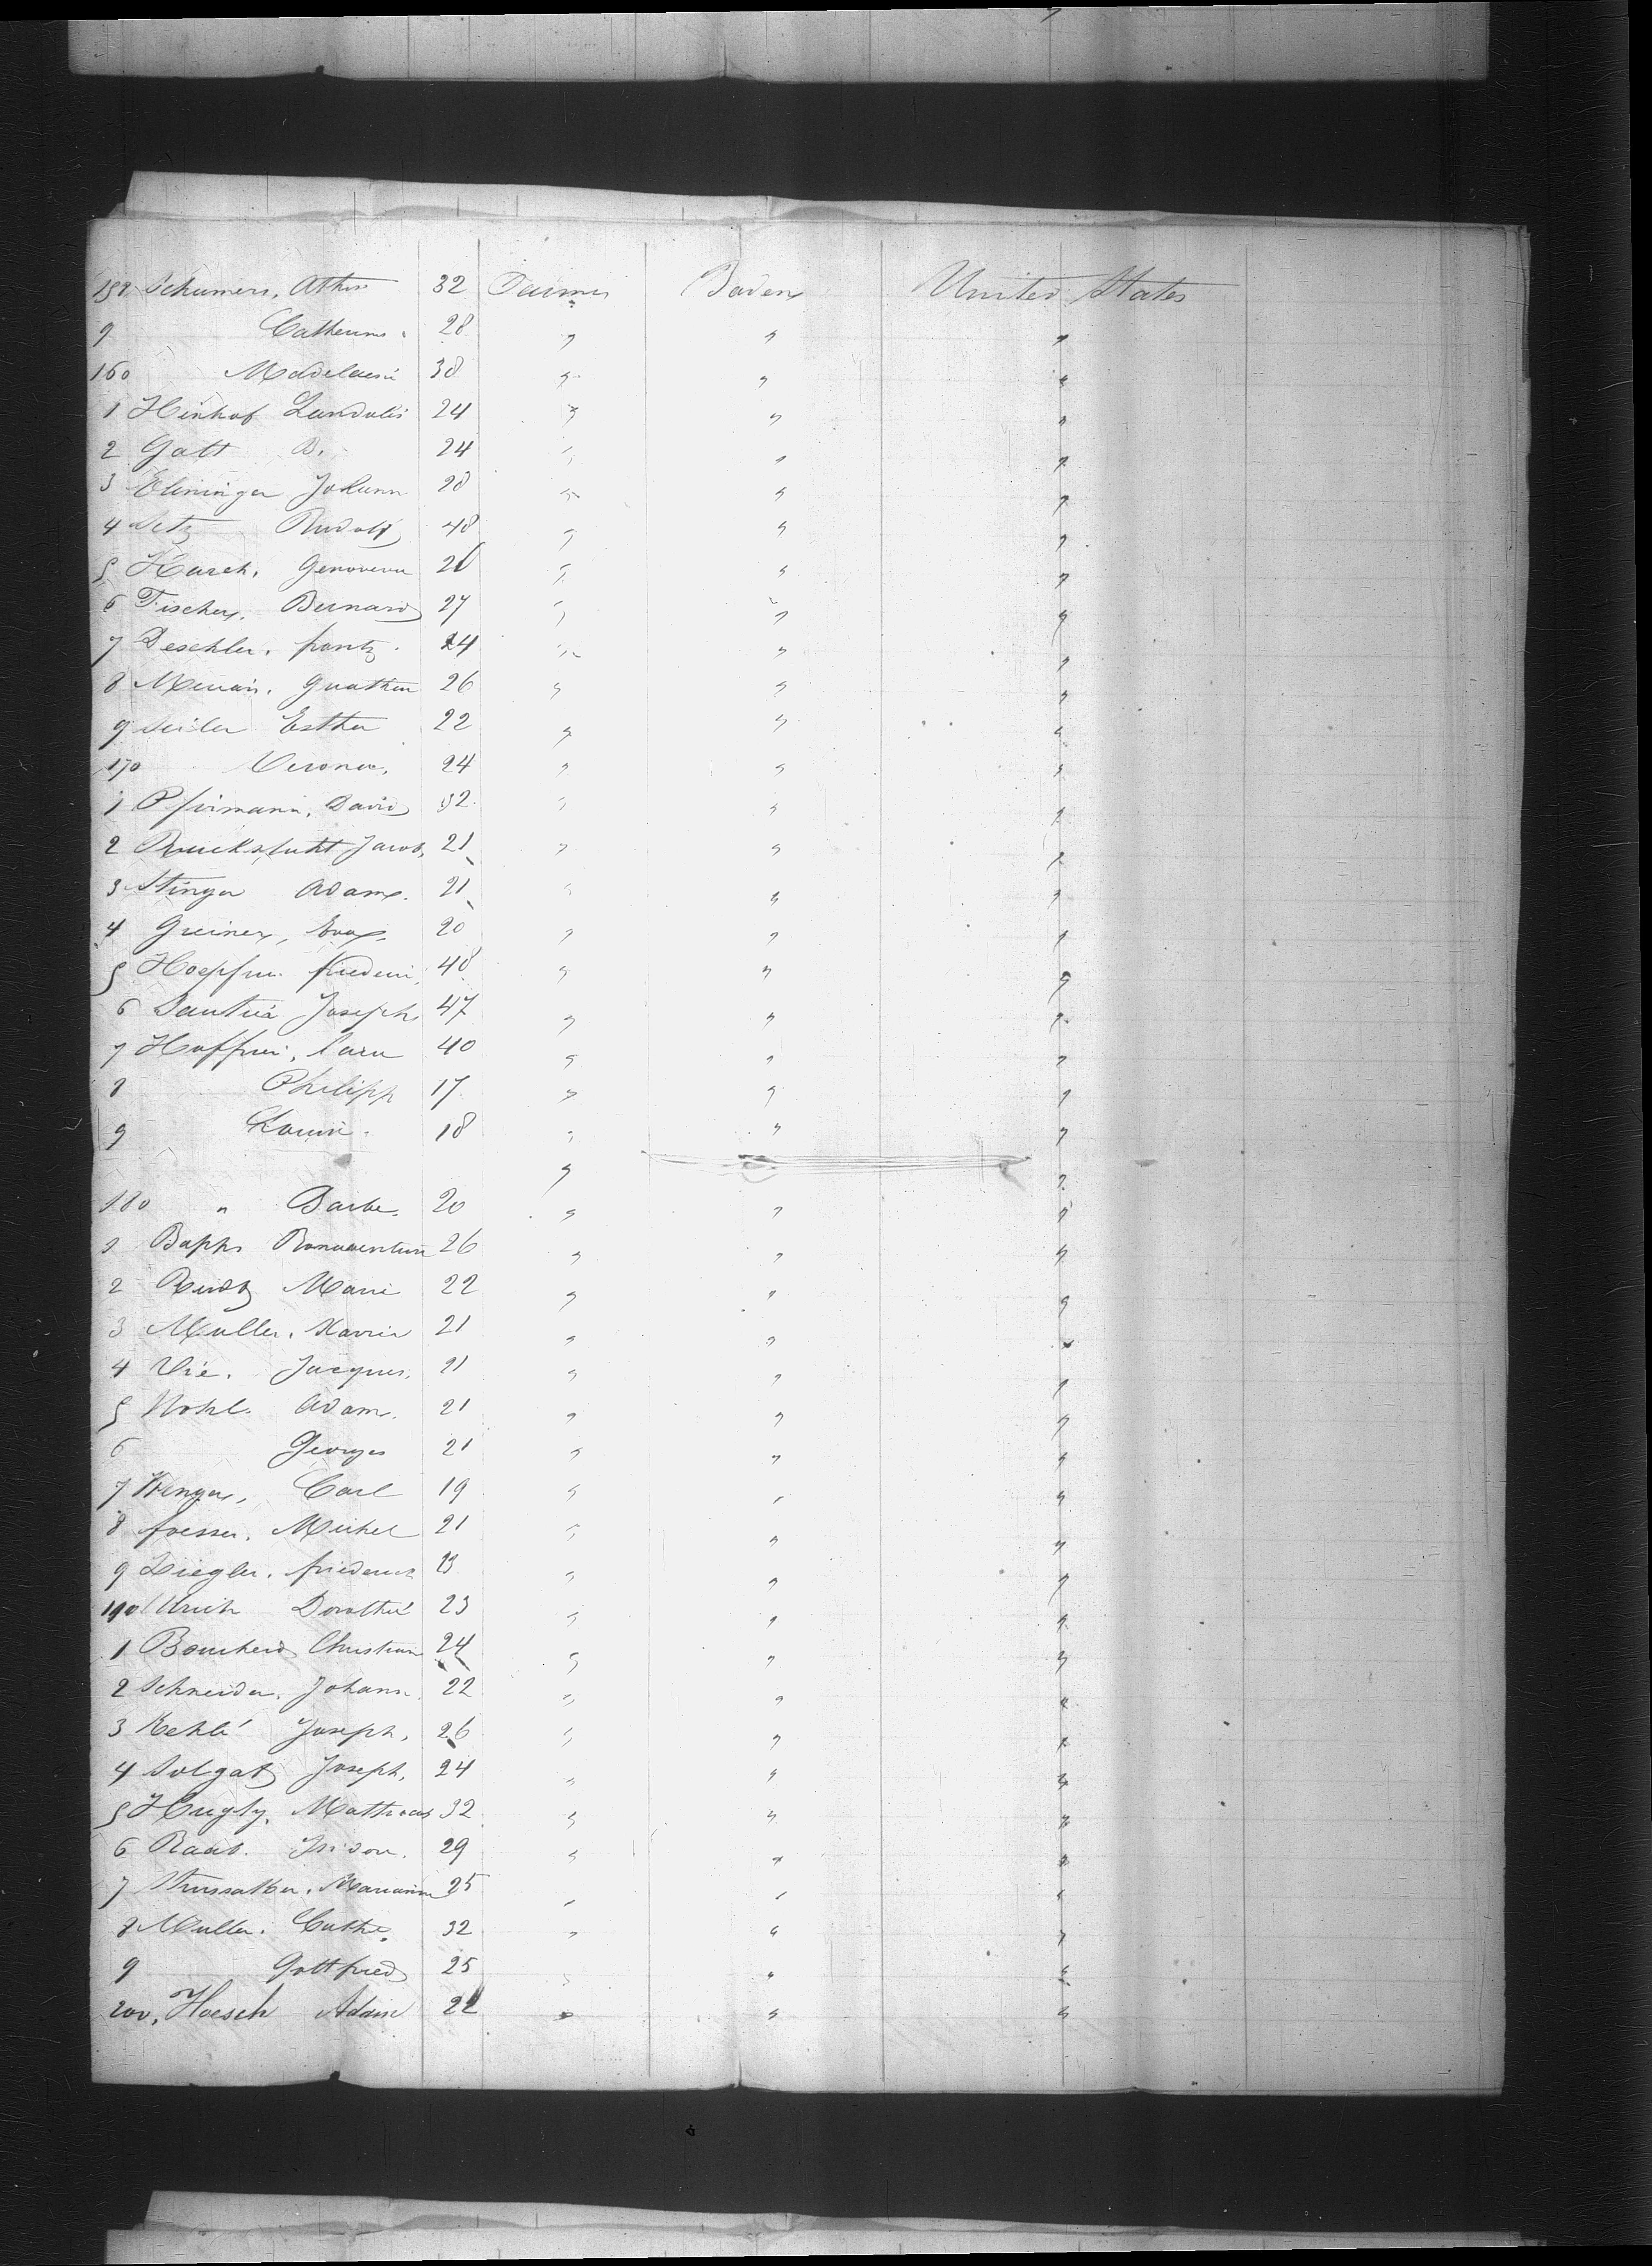 158 Schumers, Athe 32 Farmer Baden United States
9 Catherine 28 " " "
160 Madelaine 38 " " "
1 Hinhof Landolis 24 " " "
2 Gatt B. 24 " " "
3 Eleninger Johann 28 " " "
4 Setz Rudolf 48 " " "
5 Harch, Genoveva 26 " " "
6 Fischer, Bernard 27 " " "
7 Deschler, frantz 24 " " "
8 26 " " "
9 Seiler Esther 22 " " "
170 Verona, 24 " " "
1 Pfirmann, David 32 " " "
2 Ruckstuht Jacob, 21 " " "
3 Stinger Adam 21 " " "
4 Greiner, Eva 20 " " "
5 Hoepfner 48 " " "
6 Sautier Joseph 47 " " "
7 Hoffner, 40 " " "
8 Philipp 17 " " "
9 Louise 18 " " "
" "
180 " Barbe, 20 " " "
1 Bapps Bonaventure 26 " " "
2 Marie 22 " " "
3 Muller, Xavier 21 " " "
4 Vié, Jacques, 21 " " "
5 Nohl, Adam, 21 " " "
6 Georges 21 " " "
7 Wenger, Carl 19 " " "
8 foesser, Michel 21 " " "
9 Ziegler, friederick 23 " " "
190 Ulrich Dorothé 23 " " "
1 Boucherd Christian 24 " " "
2 Schneider, Johann 22 " " "
3 Kehlé Joseph, 26 " " "
4 Solgat Joseph, 24 " " "
5 Hugly, Mathias 32 " " "
6 Raab, Isidore, 29 " " "
7 Marianne 25 " " "
8 Muller, Cathe. 32 " " "
9 Gottfried 25 " " "
200, Hoesch Adam 22 " " "